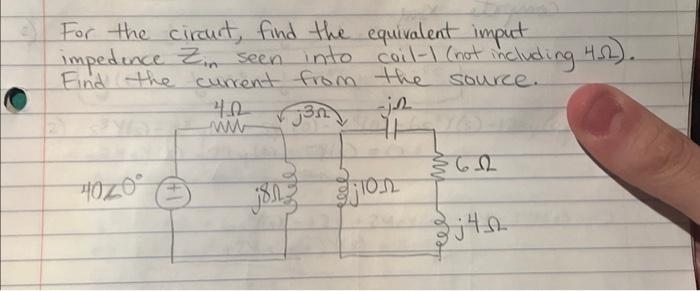 For the circuit, find the equivalent imput
impedence Zin seen into coil-1 (not including 4Ω).
Find the current from the source.
4Ω
j3Ω
-jΩ
40∠0°
+
-
j8Ω
j10Ω
6Ω
j4Ω